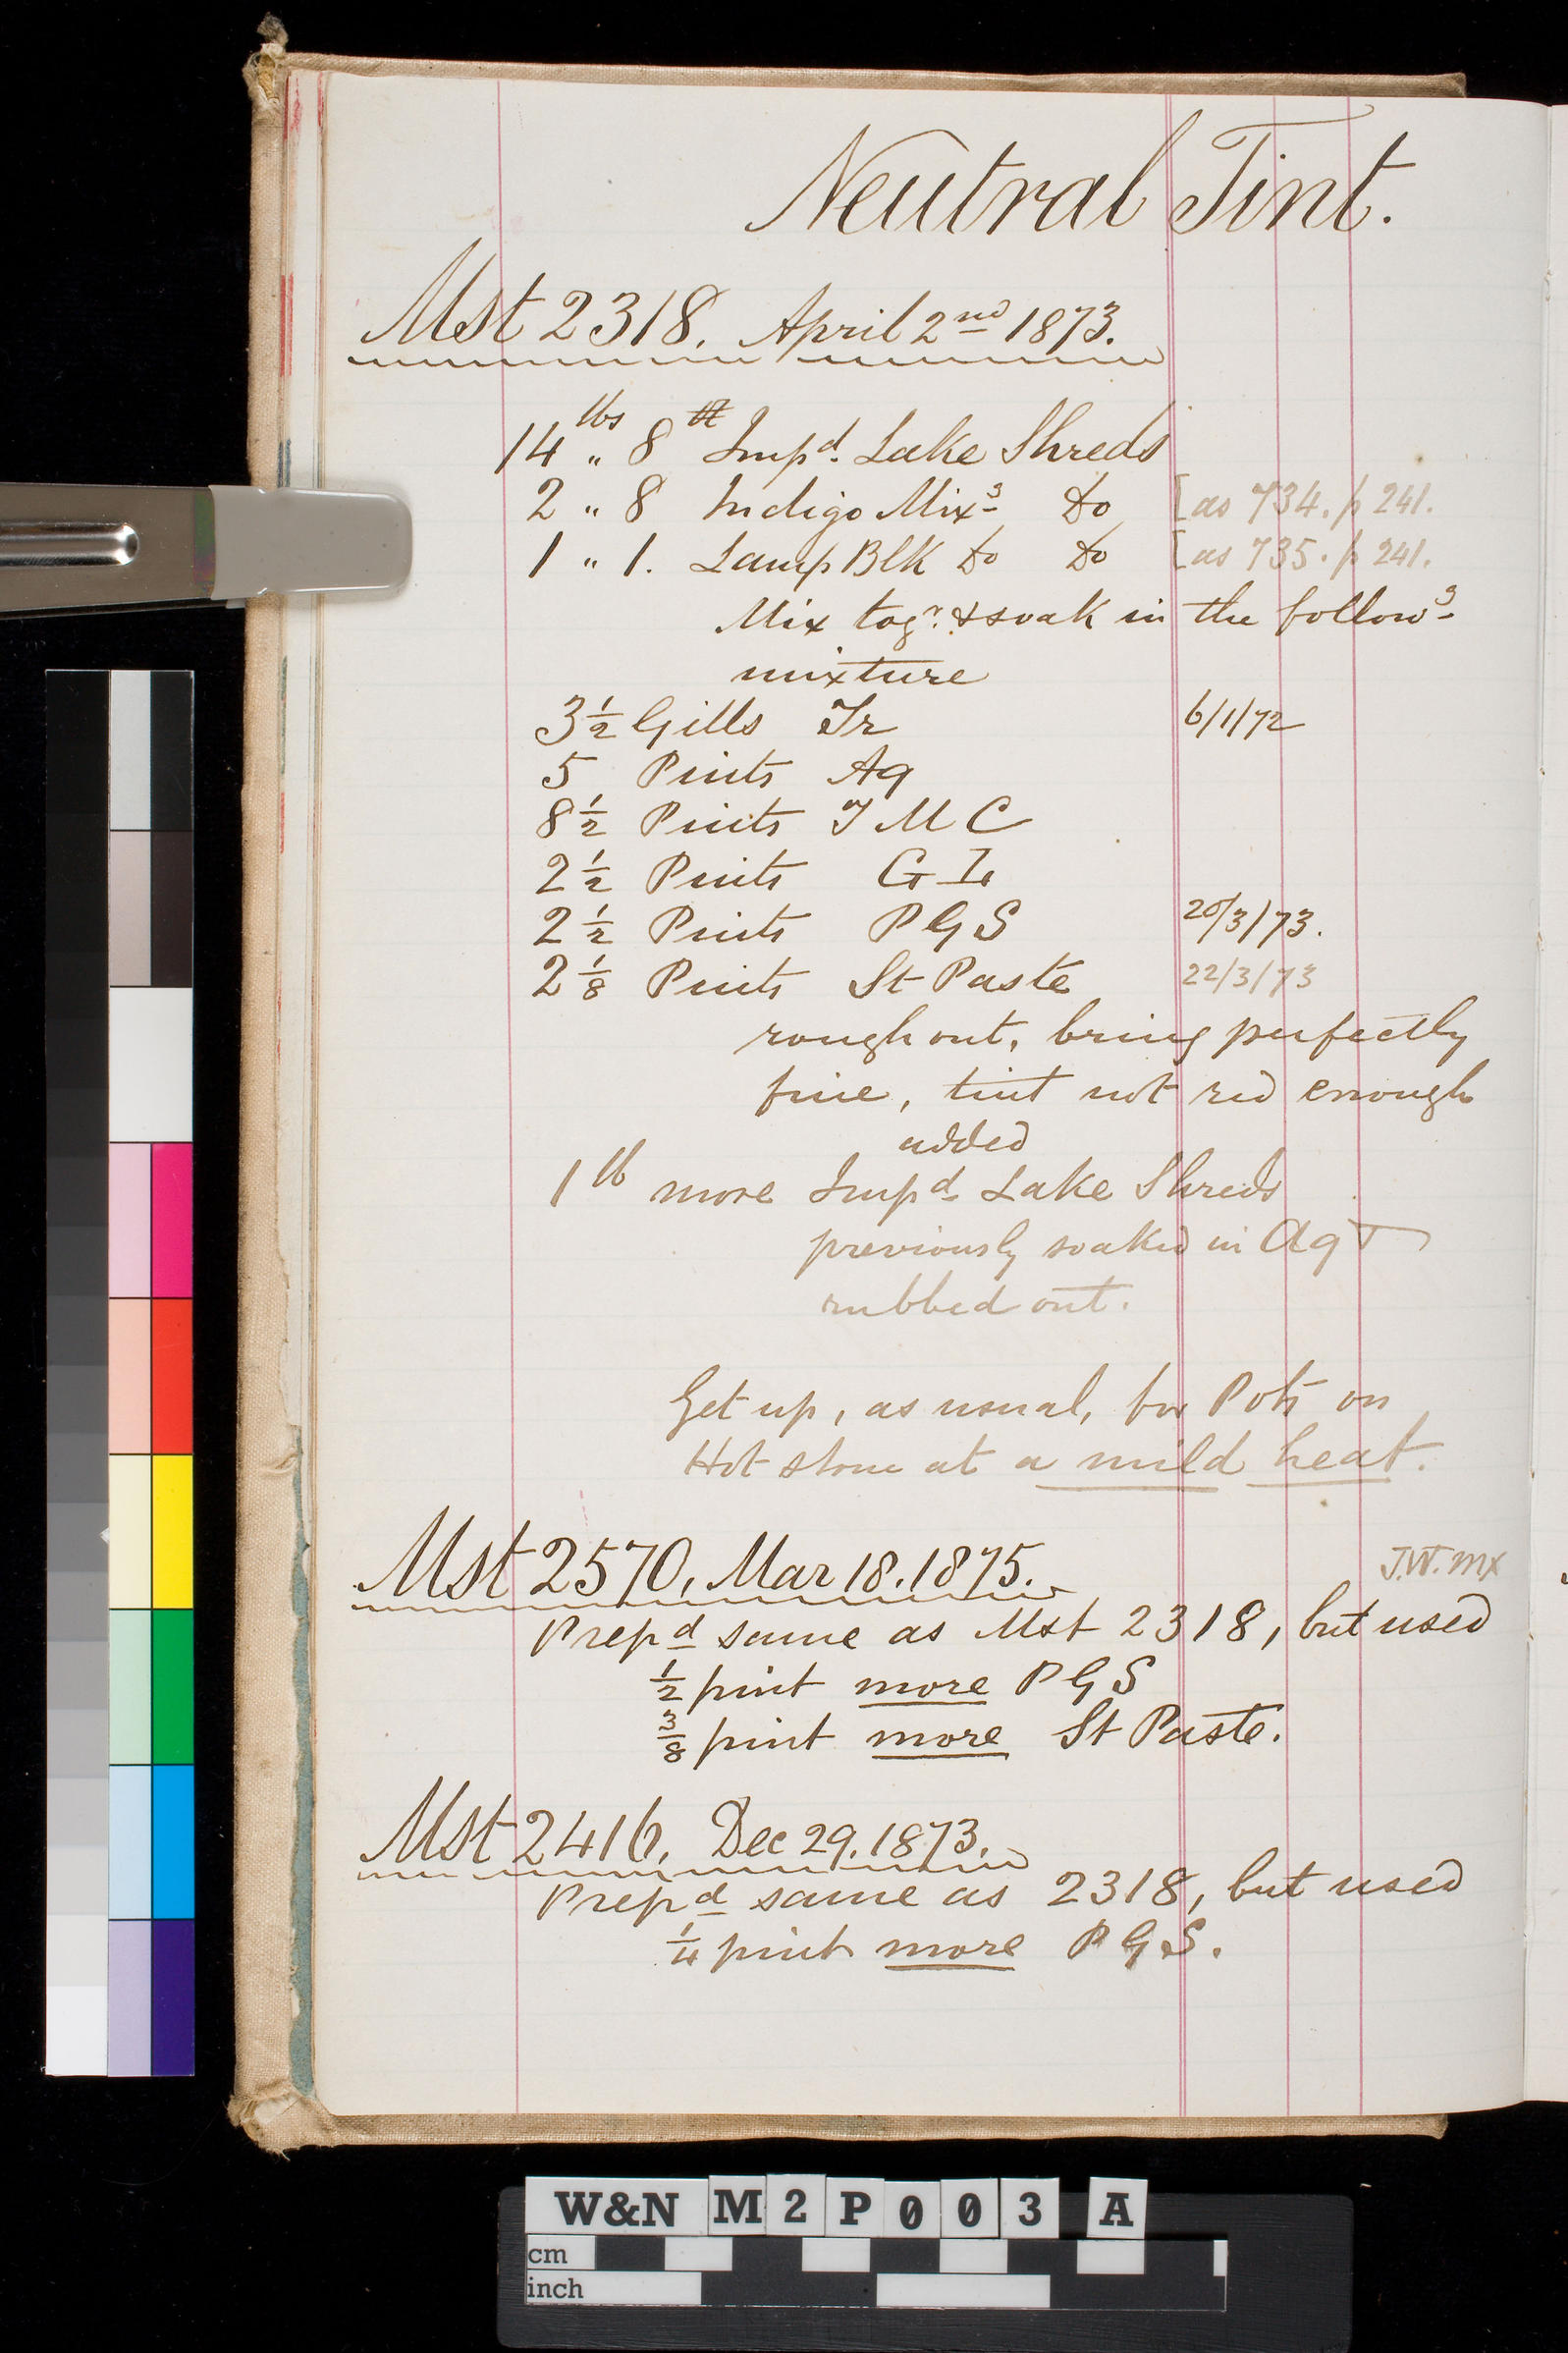 Neutral Tint.
Mst 2318. April 2nd 1873.
14 lbs „ 8 Impd. Lake Shreds
2 „ 8 Indigo Mixg Do [as 734. p 241.
1 „ 1. Lamp Blk Do Do [as 735. p 241.
Mix togr. & soak in the followg
mixture
3½ Gills Tr 6/1/72
5 Pints Aq
8½ Pints T M C
2½ Pints G I
2½ Pints P G S 20/3/73.
2⅛ Pints St Paste 22/3/73
rough out, bring perfectly
fine, tint not red enough
added
1 lb more Impd Lake Shreds
previously soaked in Aq T
rubbed out.
Get up, as usual, for Pots on
Hot stone at a mild heat.
Mst 2570, Mar 18. 1875. J.W. Mx
Prepd same as Mst 2318, but used
½ pint more P G S
⅜ pint more St Paste.
Mst 2416. Dec 29. 1873.
Prepd same as 2318, but used
¼ pint more P G S.
W&N M2P003 A
cm
inch